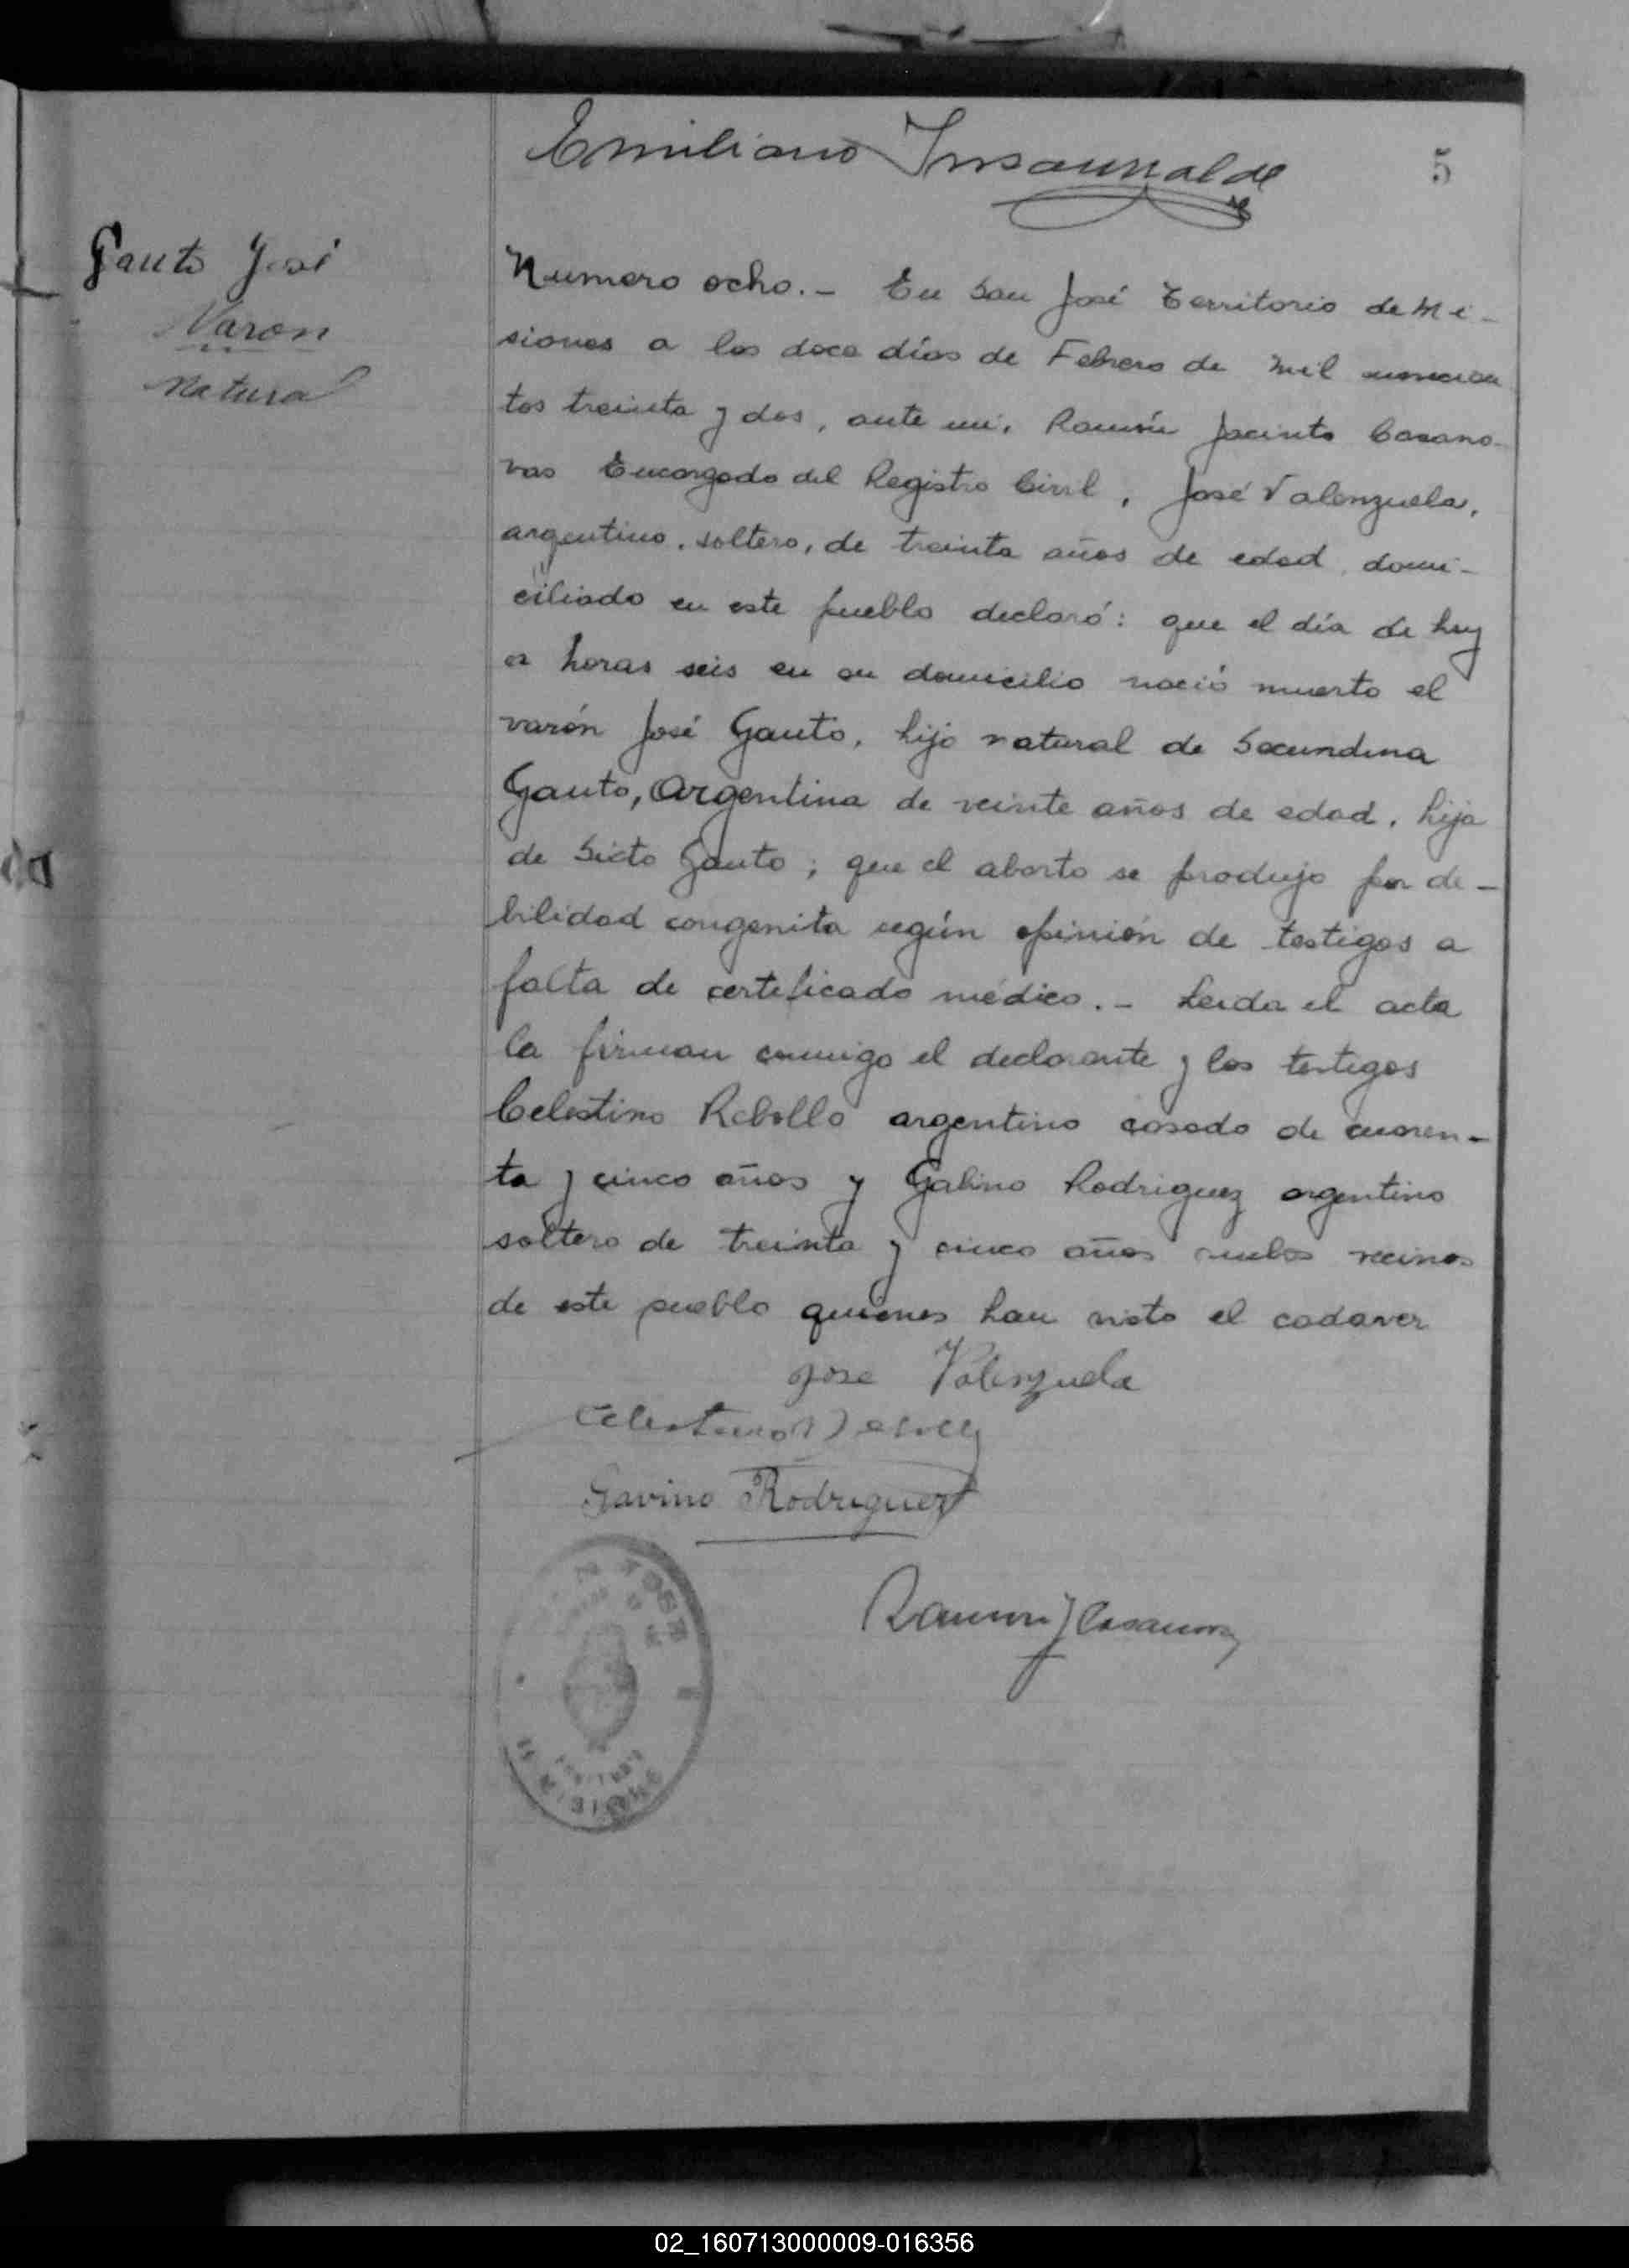 Emiliano Insaurralde
5
Gauto José
Varon
Natural
Numero ocho.- En San José Territorio de Mi-
siones a los doce días de Febrero de mil novecien
tos treinta y dos, ante mi, Ramón Jacinto Casano-
vas Encargado del Registro Civil, José Valenzuela,
argentino, soltero, de treinta años de edad, domi-
ciliado en este pueblo declaró: que el día de hoy
a horas seis en su domicilio nació muerto el
varón José Gauto, hijo natural de Secundina
Gauto, Argentina de veinte años de edad, hija
de Sixto Gauto; que el aborto se produjo por de-
bilidad congenita según opinión de testigos a
falta de certificado médico.- Leida el acta
la firman conmigo el declarante y los testigos
Celestino Rebollo argentino casado de cuaren-
ta y cinco años y Gabino Rodriguez argentino
soltero de treinta y cinco años ambos vecinos
de este pueblo quienes han visto el cadaver
Jose Valenzuela
Celestino
Gavino Rodriguez
Ramon J Casanovas
MISIONES
02_160713000009-016356